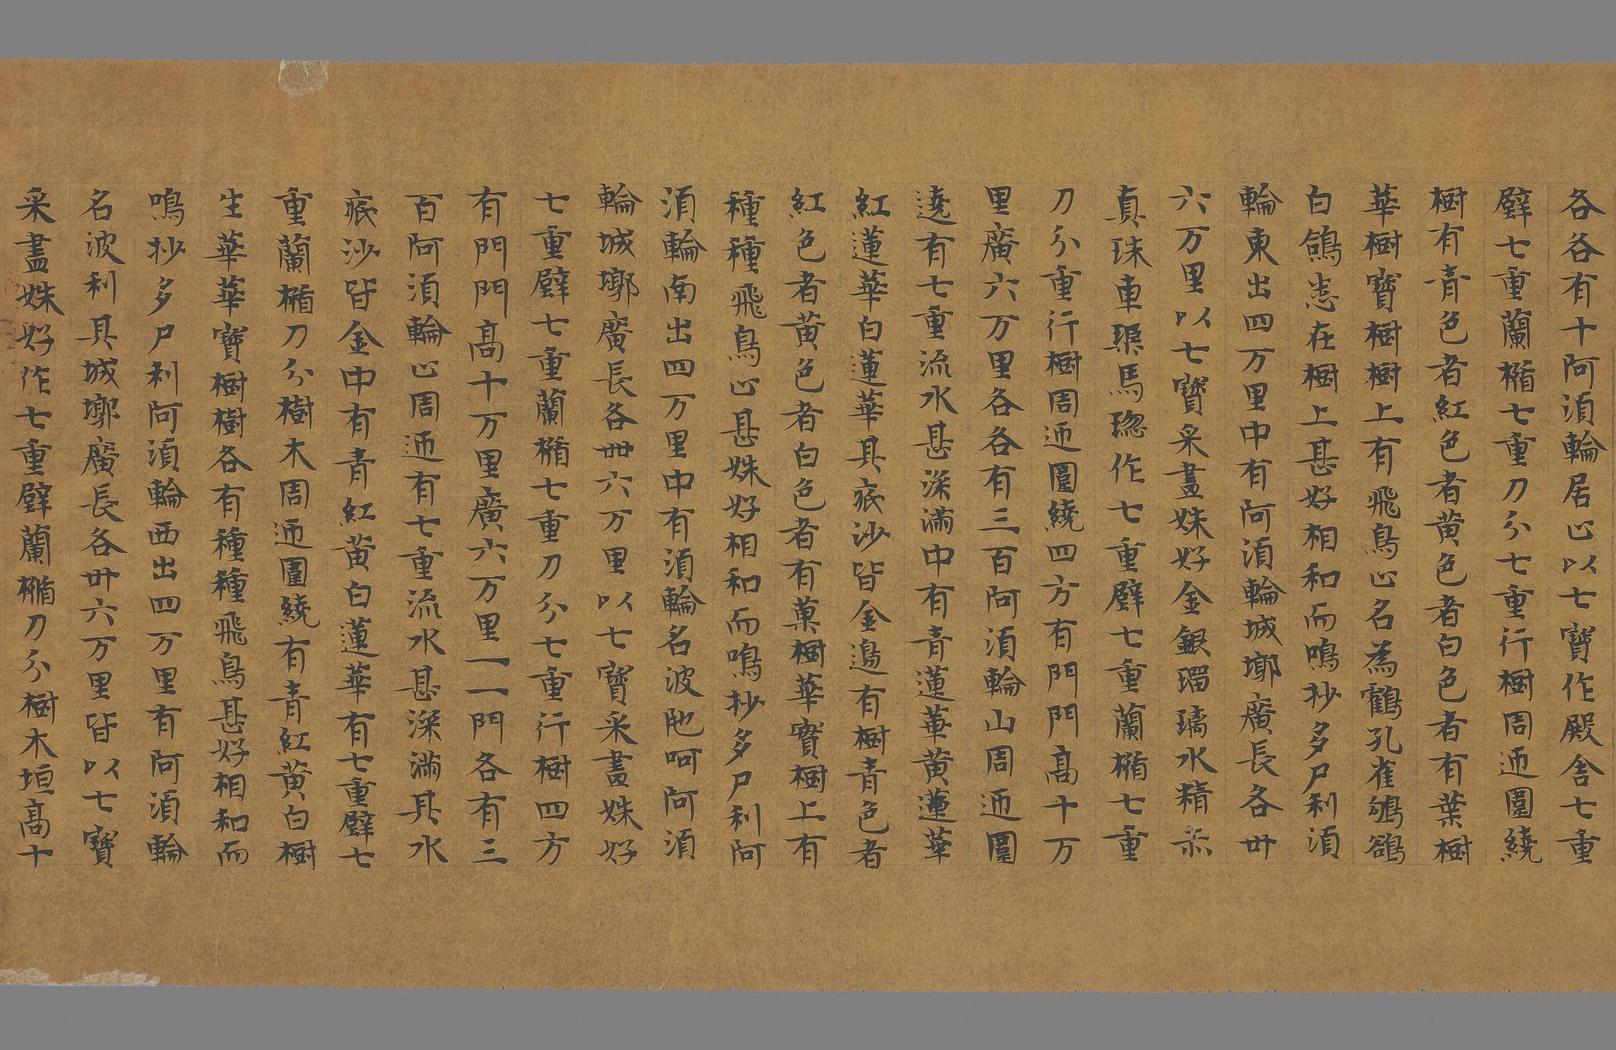 各各有十阿須輪居止以七寶作殿舍七重
壁七重蘭楯七重刀分七重行樹周迊圍繞
樹有青色者紅色者黃色者白色者有葉樹
華樹寶樹樹上有飛鳥止名為鶴孔雀鴝鵒
白鴿悉在樹上甚好相和而鳴抄多尸利須
輪東出四万里中有阿須輪城墎廣長各卅
六万里以七寶采畫姝好金銀琉璃水精赤
真珠車璖馬瑙作七重壁七重蘭楯七重
刀分重行樹周迊圍繞四方有門門高十万
里廣六万里各各有三百阿須輪山周迊圍
遶有七重流水甚深滿中有青蓮華黃蓮華
紅蓮華白蓮華其底沙皆金邊有樹青色者
紅色者黃色者白色者有菓樹華寶樹上有
種種飛鳥止甚姝好相和而鳴抄多尸利阿
須輪南出四万里中有須輪名波陁呵阿須
輪城墎廣長各卌六万里以七寶采畫姝好
七重壁七重蘭楯七重刀分七重行樹四方
有門門高十万里廣六万里一一門各有三
百阿須輪止周迊有七重流水甚深滿其水
底沙皆金中有青紅黃白蓮華有七重壁七
重蘭楯刀分樹木周迊圍繞有青紅黃白樹
生華華寶樹樹各有種種飛鳥甚好相和而
鳴抄多尸利阿須輪西出四万里有阿須輪
名波利具城墎廣長各卅六万里皆以七寶
采畫姝好作七重壁蘭楯刀分樹木垣高十